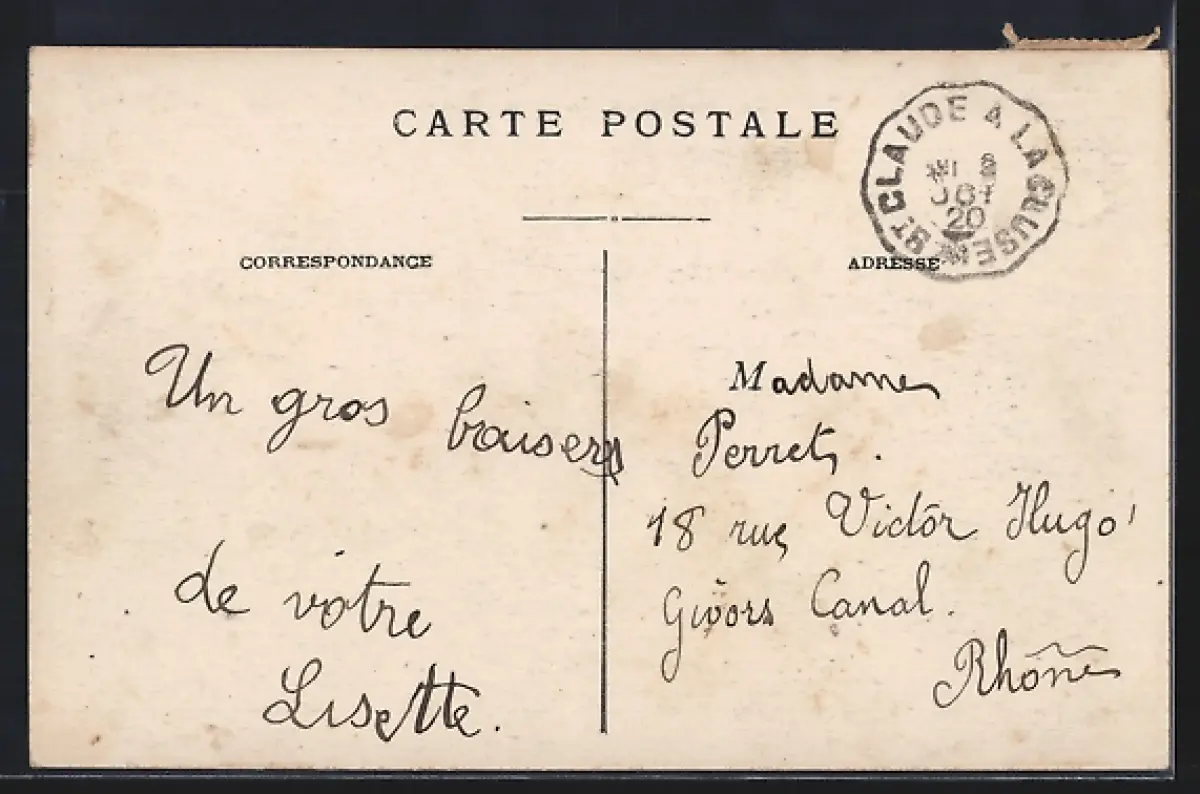 CARTE POSTALE
ST CLAUDE A LA CLUSE
20
CORRESPONDANCE
ADRESSE
Un gros baiser
de votre
Lisette.
Madame
Perret.
18 rue Victor Hugo
Givors Canal.
Rhône